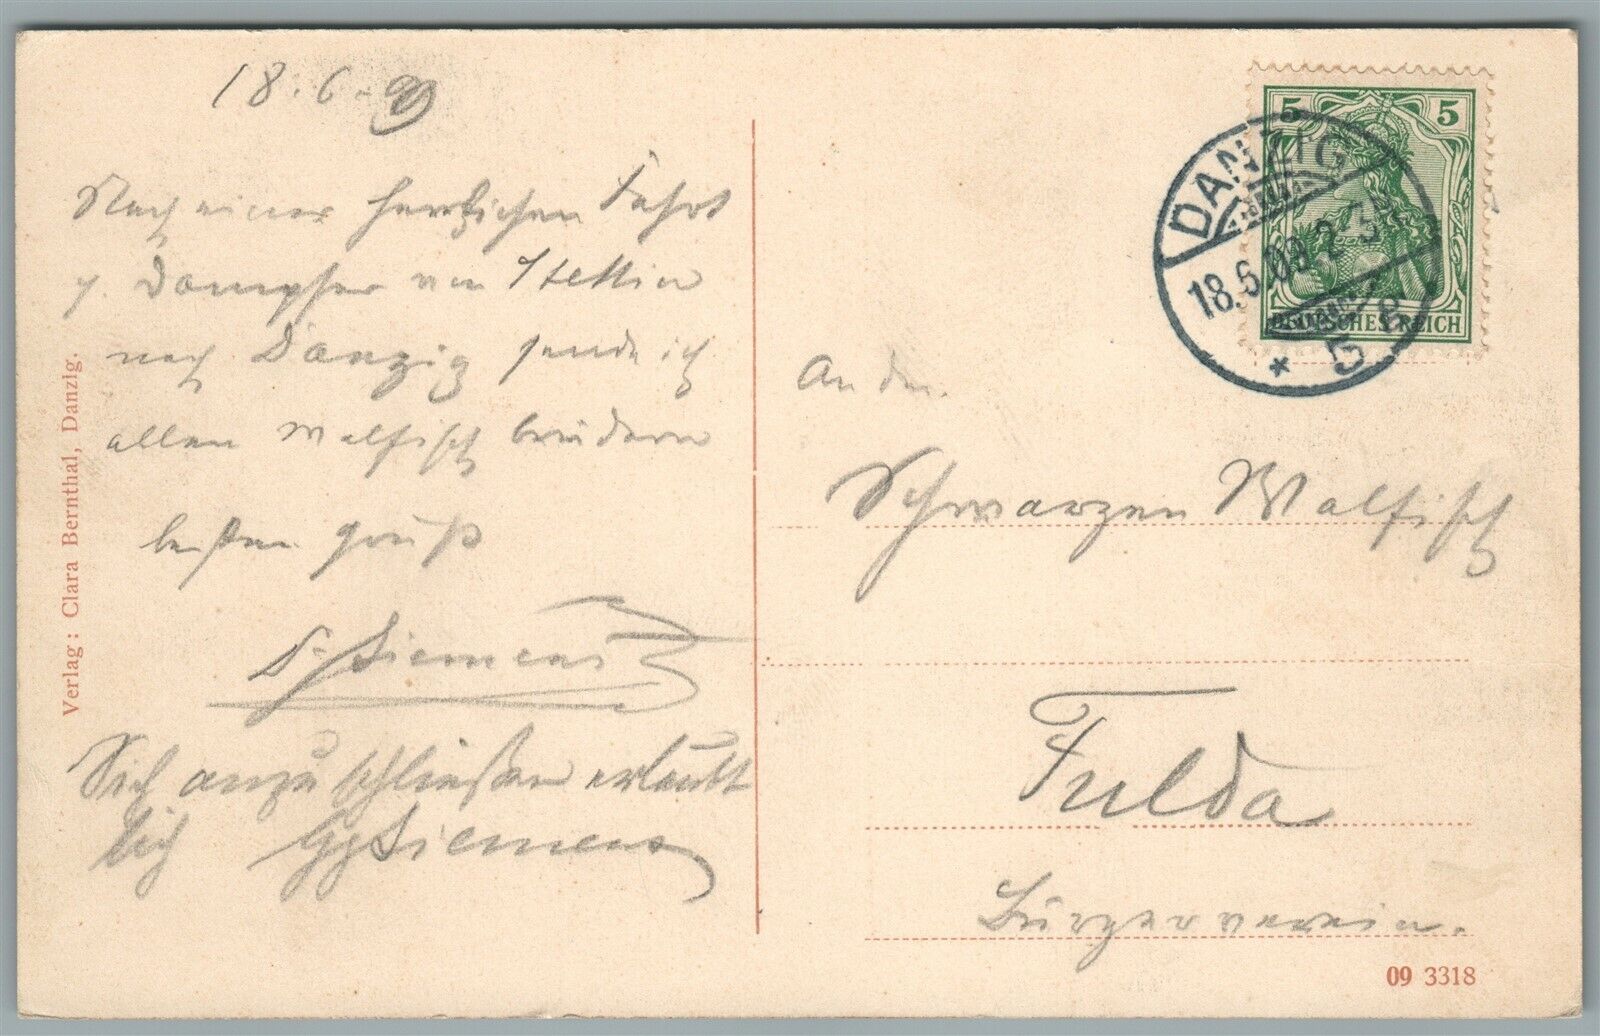 18.6.09
Nach einer herrlichen Fahrt
p. Dampfer von Stettin
nach Danzig sende ich
allen Walfischbrüdern
besten Gruß
Dr Siemens
Sich anzuschließen erlaubt
sich Gg Siemens
Verlag: Clara Bernthal, Danzig.
5 5
DEUTSCHES REICH
DANZIG
18.6.09. 2-3
* 5 a
An den
Schwarzen Walfisch
Fulda
Bürgerverein.
09 3318